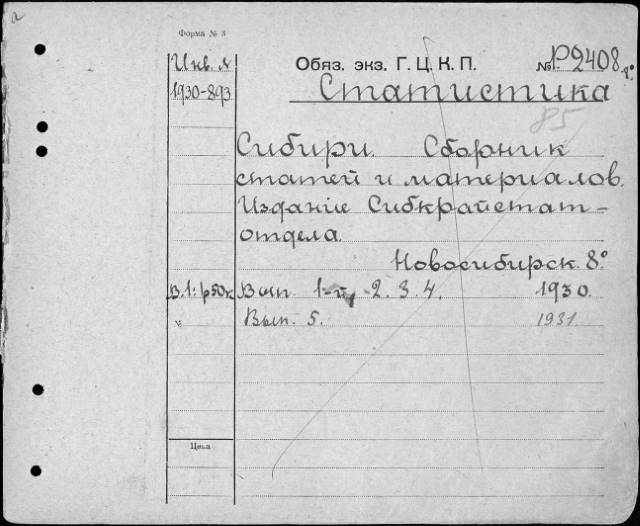 а
Форма № 3
Инв. №
1930-893
Обяз. экз. Г. Ц. К. П.
№ Р2408. 8°
Статистика
85
Сибири. Сборник
статей и материалов.
Изданіе Сибкрайстат-
отдела.
Новосибирск. 8°
В. 1: 1р50к Вып. 1-й, 2. 3. 4. 1930.
Вып. 5. 1931.
Цена